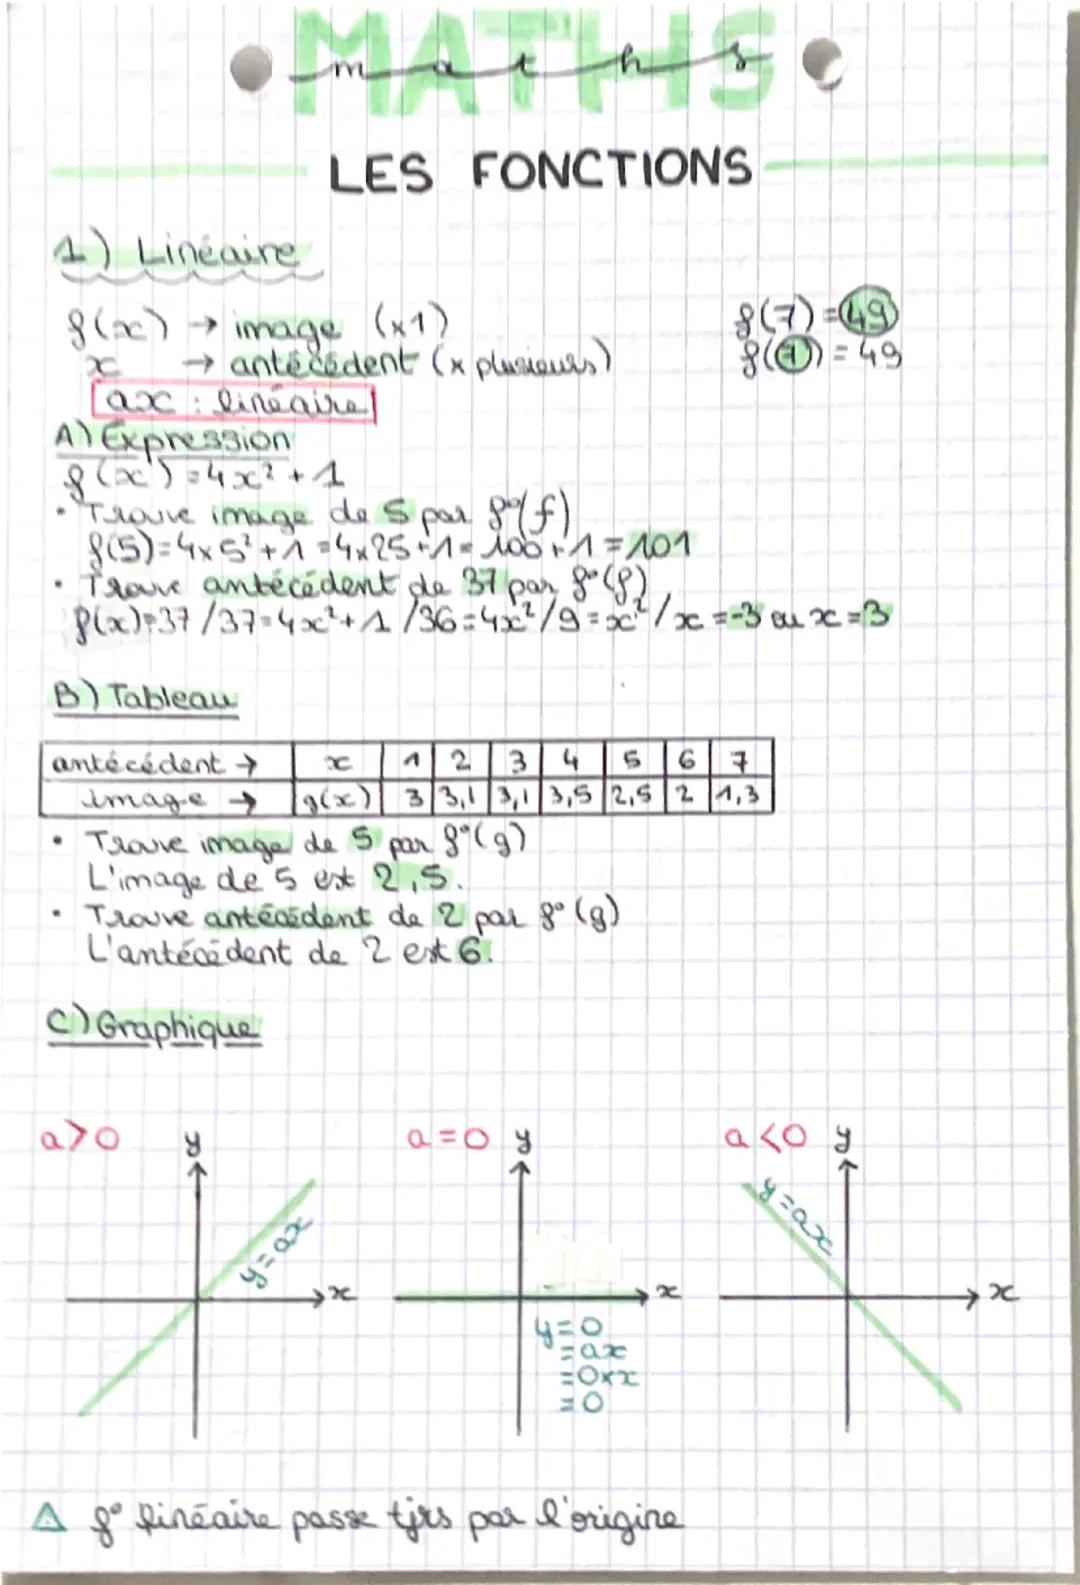 MATHS
maths
LES FONCTIONS
1) Linéaire
f(x) → image (x1)
x → antécédent (x plusieurs)
f(7) = 49
f(7) = 49
ax : linéaire
A) Expression
f(x) = 4x² + 1
• Trouve image de 5 par f°(f)
f(5) = 4x5² + 1 = 4x25 + 1 = 100 + 1 = 101
• Trouve antécédent de 37 par f°(f)
f(x) = 37 / 37 = 4x² + 1 / 36 = 4x² / 9 = x² / x = -3 ou x = 3
B) Tableau
antécédent → x 1 2 3 4 5 6 7
image → g(x) 3 3,1 3,1 3,5 2,5 2 1,3
• Trouve image de 5 par f°(g)
L'image de 5 est 2,5.
• Trouve antécédent de 2 par f°(g)
L'antécédent de 2 est 6.
C) Graphique
a>0 y
y=ax
x
a=0 y
x
y=0
=ax
=0xx
=0
a<0 y
y=ax
x
⚠ f° linéaire passe tjrs par l'origine